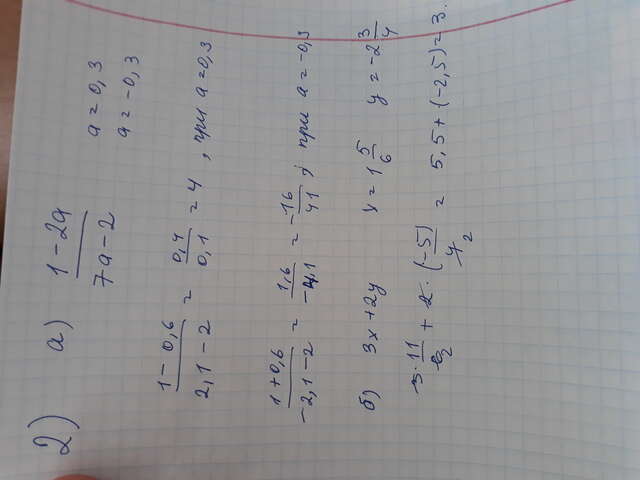 2) а) 1 - 2a / 7a - 2
a = 0,3
a = -0,3
1 - 0,6 / 2,1 - 2 = 0,4 / 0,1 = 4 , при a = 0,3
1 + 0,6 / -2,1 - 2 = 1,6 / -4,1 = -16 / 41 ; при a = -0,3
б) 3x + 2y x = 1 5/6 y = -2 3/4
3 · 11 / 6 2 + 2 · (-5) / 4 2 = 5,5 + (-2,5) = 3.